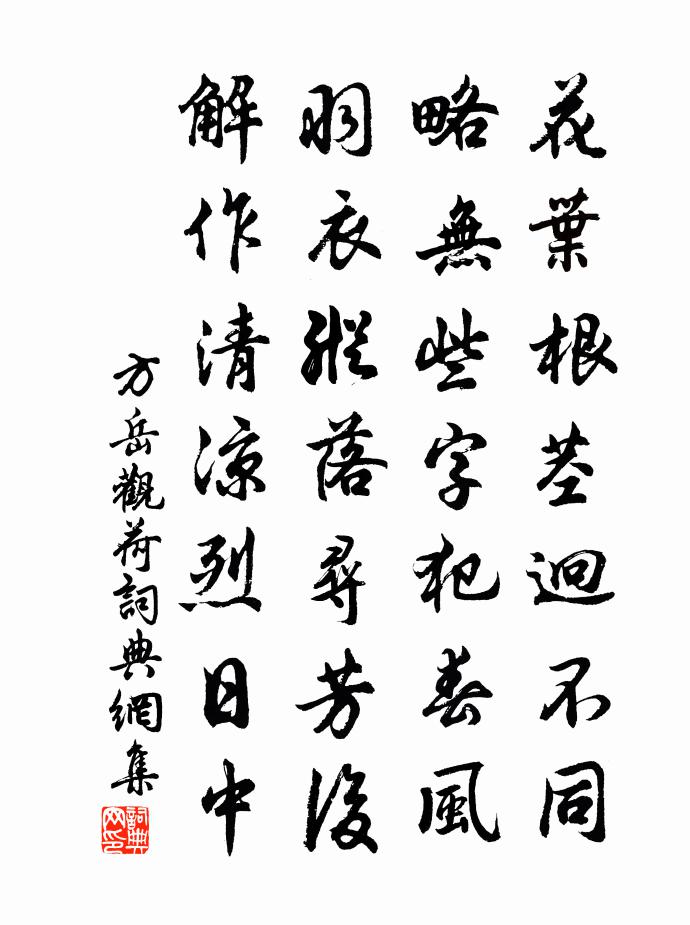 花葉根莖迥不同
略無些字犯春風
羽衣縱落尋芳後
解作清涼烈日中
方岳觀荷詞典網集
詞典
网印